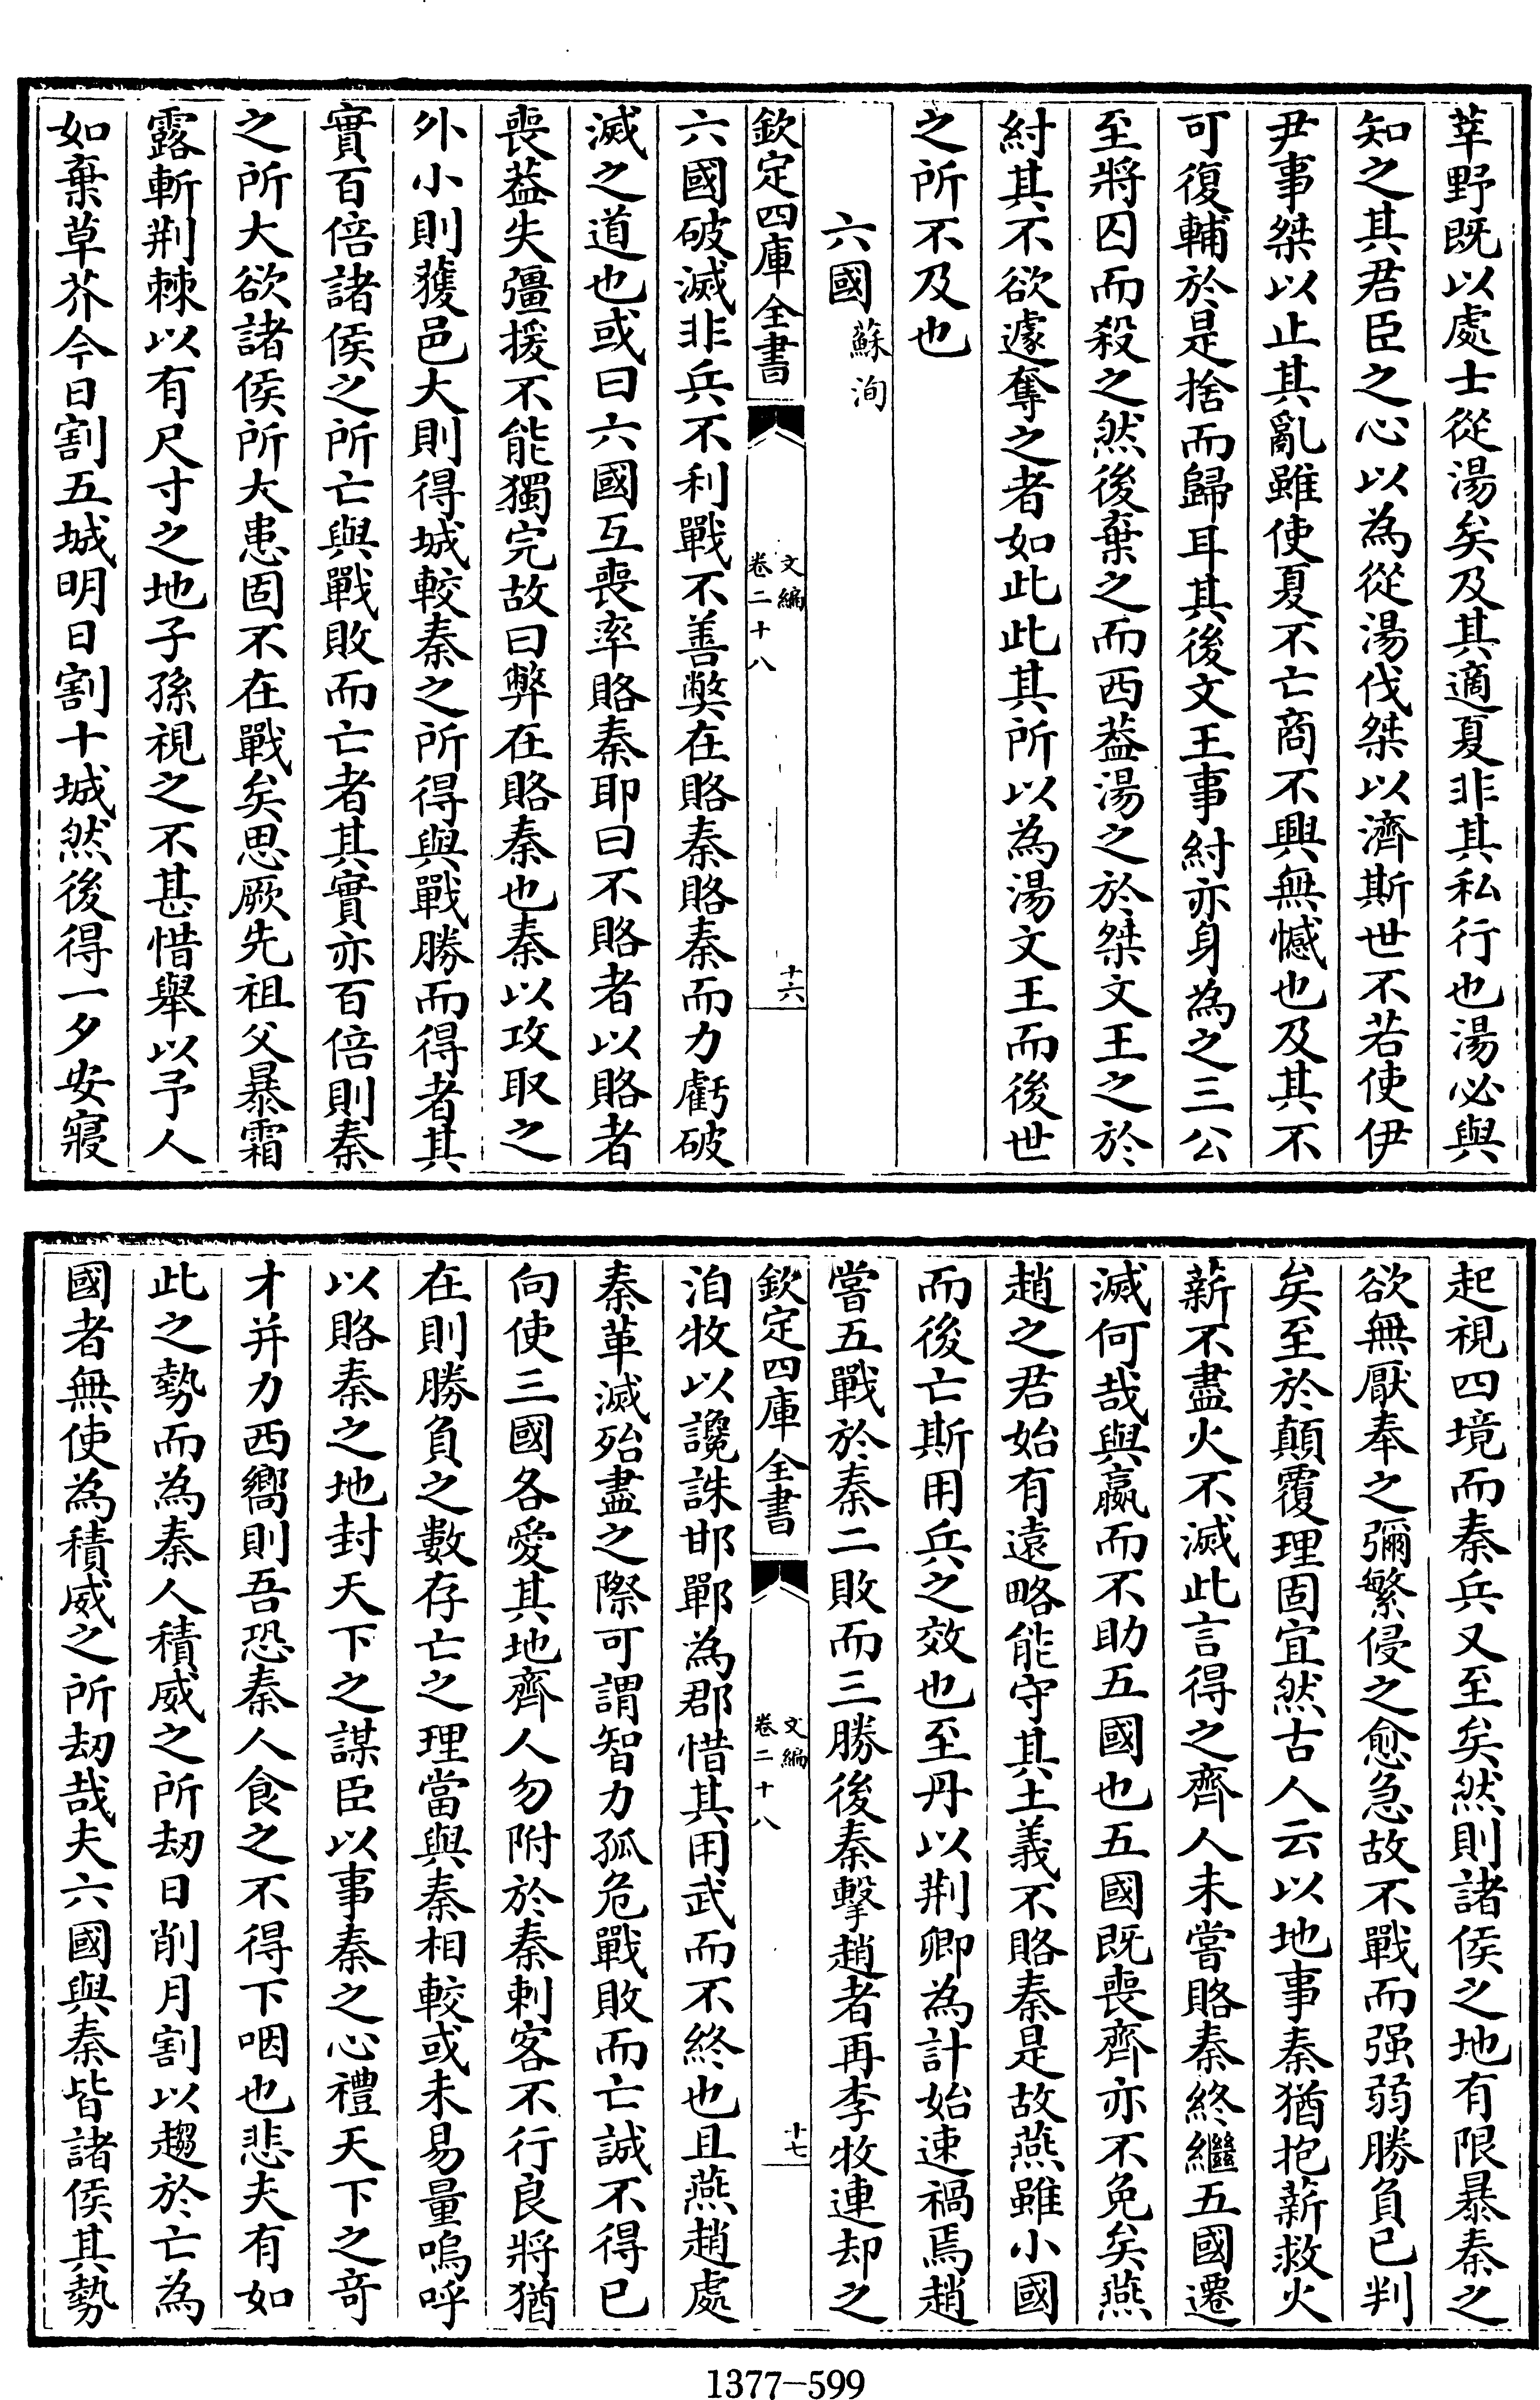 莘野既以處士從湯矣及其適夏非其私行也湯必與
知之其君臣之心以為從湯伐桀以濟斯世不若使伊
尹事桀以止其亂雖使夏不亡商不興無憾也及其不
可復輔於是捨而歸耳其後文王事紂亦身為之三公
至將囚而殺之然後棄之而西葢湯之於桀文王之於
紂其不欲遽奪之者如此此其所以為湯文王而後世
之所不及也
六國 蘇洵
欽定四庫全書
文編
卷二十八
十六
六國破滅非兵不利戰不善弊在賂秦賂秦而力虧破
滅之道也或曰六國互喪率賂秦耶曰不賂者以賂者
喪葢失彊援不能獨完故曰弊在賂秦也秦以攻取之
外小則獲邑大則得城較秦之所得與戰勝而得者其
實百倍諸侯之所亡與戰敗而亡者其實亦百倍則秦
之所大欲諸侯所大患固不在戰矣思厥先祖父暴霜
露斬荆棘以有尺寸之地子孫視之不甚惜舉以予人
如棄草芥今日割五城明日割十城然後得一夕安寢
起視四境而秦兵又至矣然則諸侯之地有限暴秦之
欲無厭奉之彌繁侵之愈急故不戰而强弱勝負已判
矣至於顛覆理固宜然古人云以地事秦猶抱薪救火
薪不盡火不滅此言得之齊人未嘗賂秦終繼五國遷
滅何哉與嬴而不助五國也五國既喪齊亦不免矣燕
趙之君始有遠略能守其土義不賂秦是故燕雖小國
而後亡斯用兵之效也至丹以荆卿為計始速禍焉趙
嘗五戰於秦二敗而三勝後秦擊趙者再李牧連却之
欽定四庫全書
文編
卷二十八
十七
洎牧以讒誅邯鄲為郡惜其用武而不終也且燕趙處
秦革滅殆盡之際可謂智力孤危戰敗而亡誠不得已
向使三國各愛其地齊人勿附於秦刺客不行良將猶
在則勝負之數存亡之理當與秦相較或未易量嗚呼
以賂秦之地封天下之謀臣以事秦之心禮天下之奇
才并力西嚮則吾恐秦人食之不得下咽也悲夫有如
此之勢而為秦人積威之所刼日削月割以趨於亡為
國者無使為積威之所刼哉夫六國與秦皆諸侯其勢
1377-599